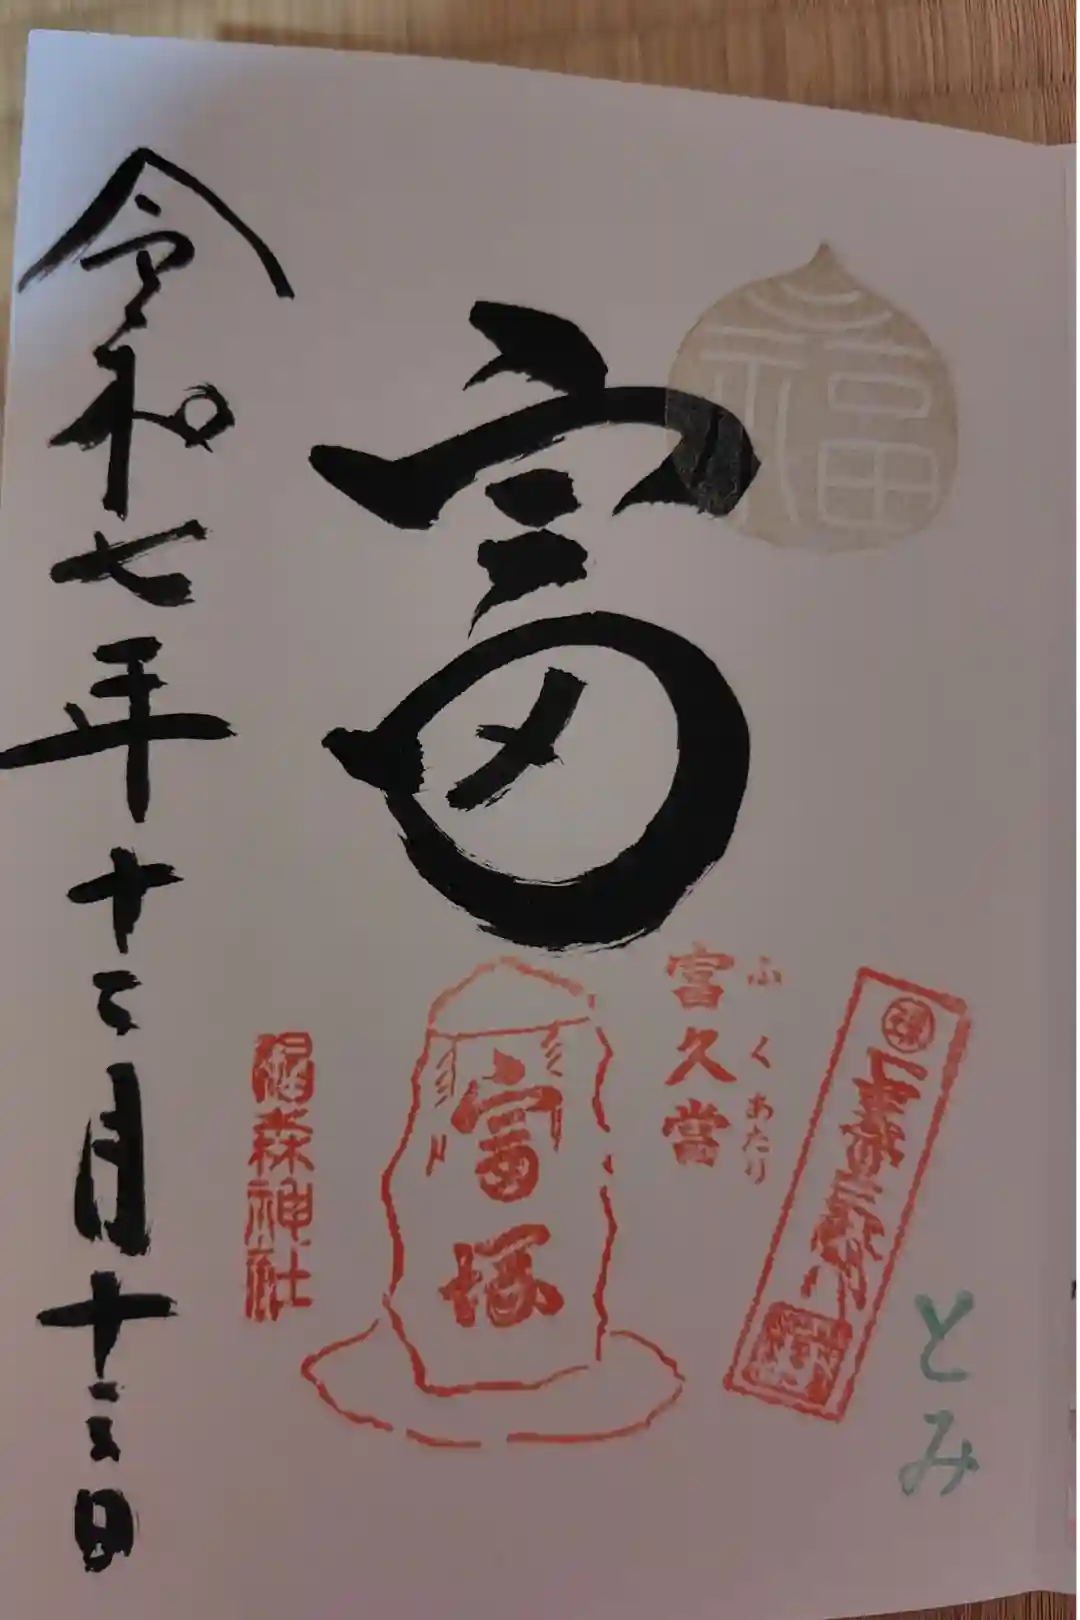 福
とみ
ふくあたり
富久當
富
富塚
椙森神社
令和七年十二月十三日